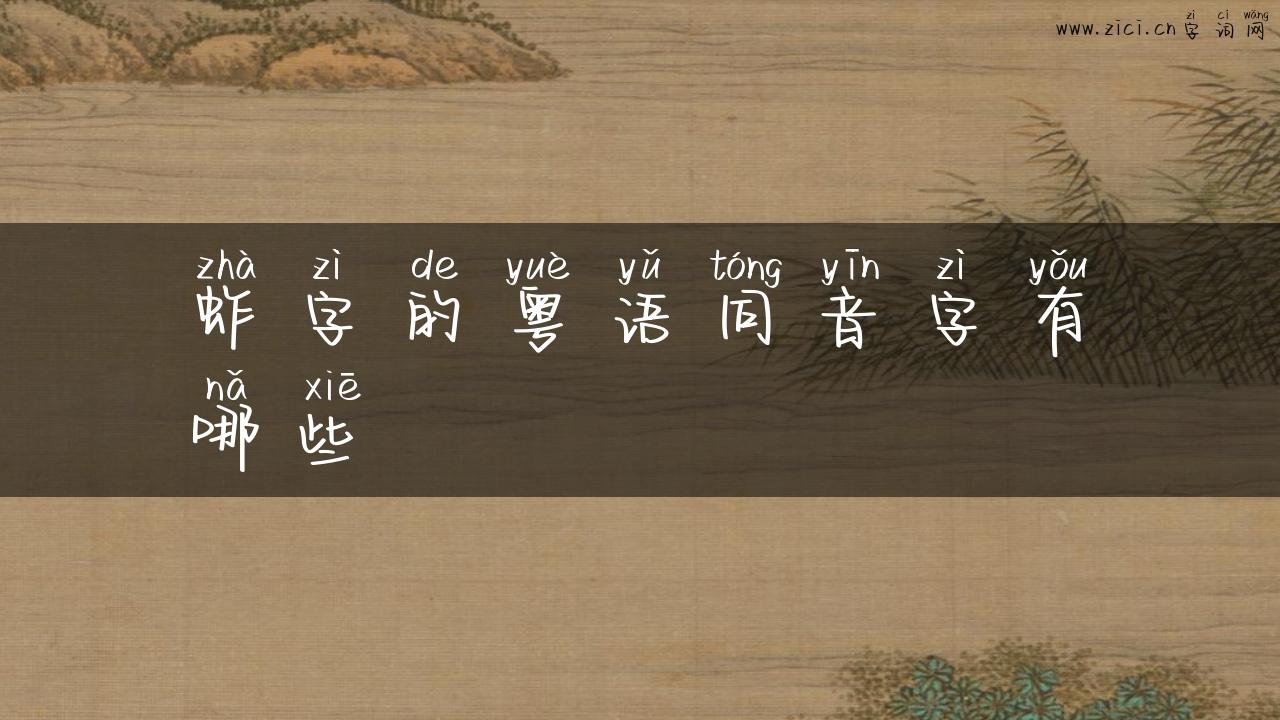 zì cí wǎng
www.zici.cn 字 词 网
zhà zì de yuè yǔ tóng yīn zì yǒu
蚱 字 的 粤 语 同 音 字 有
nǎ xiē
哪 些